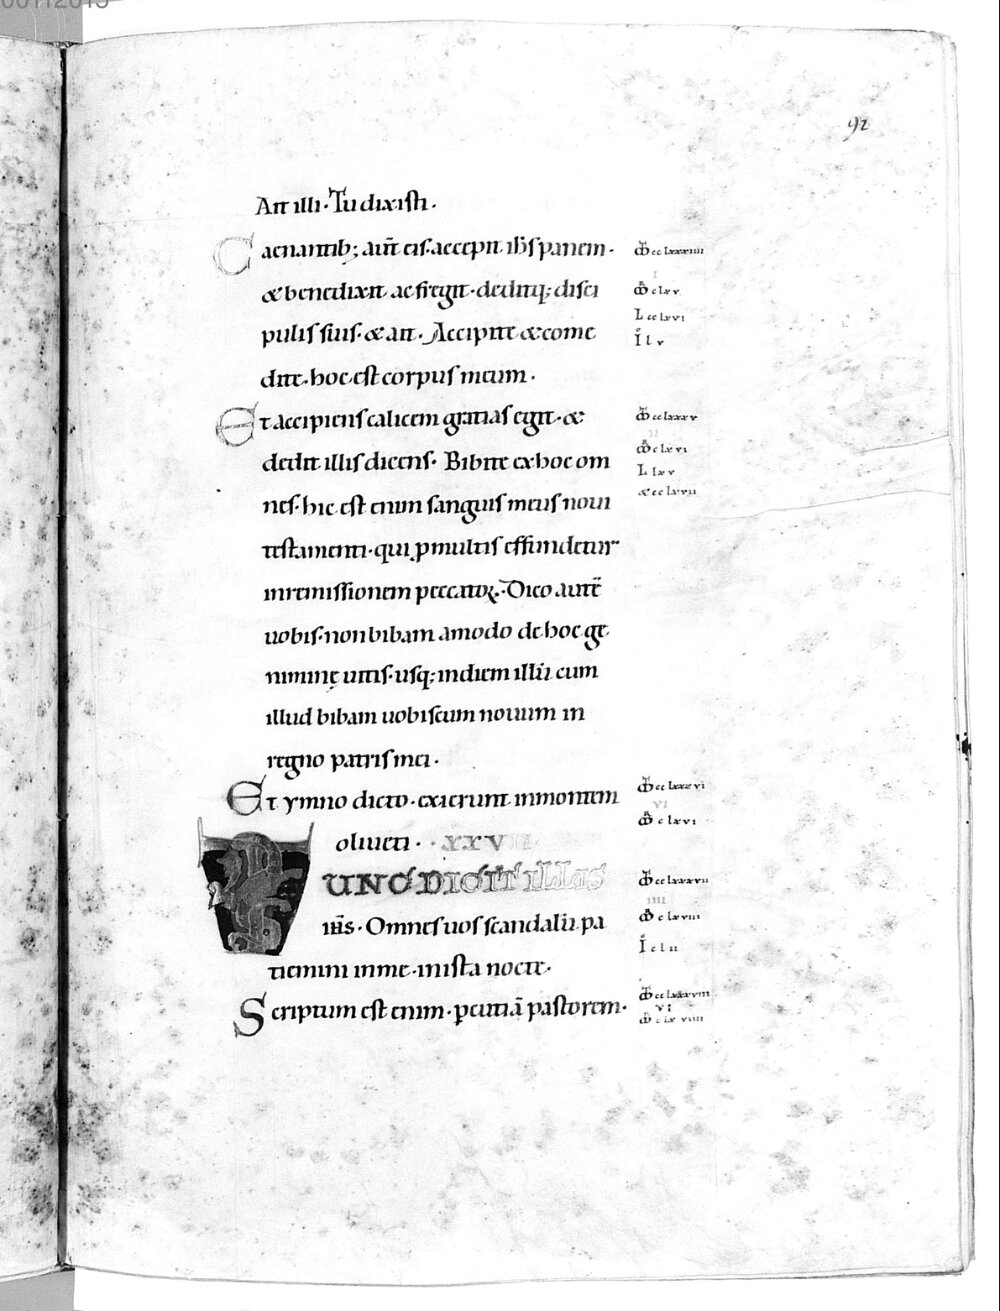 92
Ait illi · Tu dixisti ·
Caenantib; aut̄ eis · accepit ih̄s panem ·
& benedixit ac fregit · deditq; disci
pulis suis · & ait · Accipite & come
dite · hoc est corpus meum ·
Et accipiens calicem gratias egit · &
dedit illis dicens · Bibite ex hoc om
nes · hic est enim sanguis meus noui
testamenti · qui p multis effundetur
in remissionem peccatoꝝ · Dico aut̄
uobis · non bibam amodo de hoc ge
nimine uitis · usq; in diem illū cum
illud bibam uobiscum nouum in
regno patris mei ·
Et ymno dicto · exierunt in montem
oliueti · XXVII
TUNC DICIT ILLIS
ih̄s · Omnes uos scandalū pa
tiemini in me · in ista nocte ·
Scriptum est enim · pcutiā pastorem ·